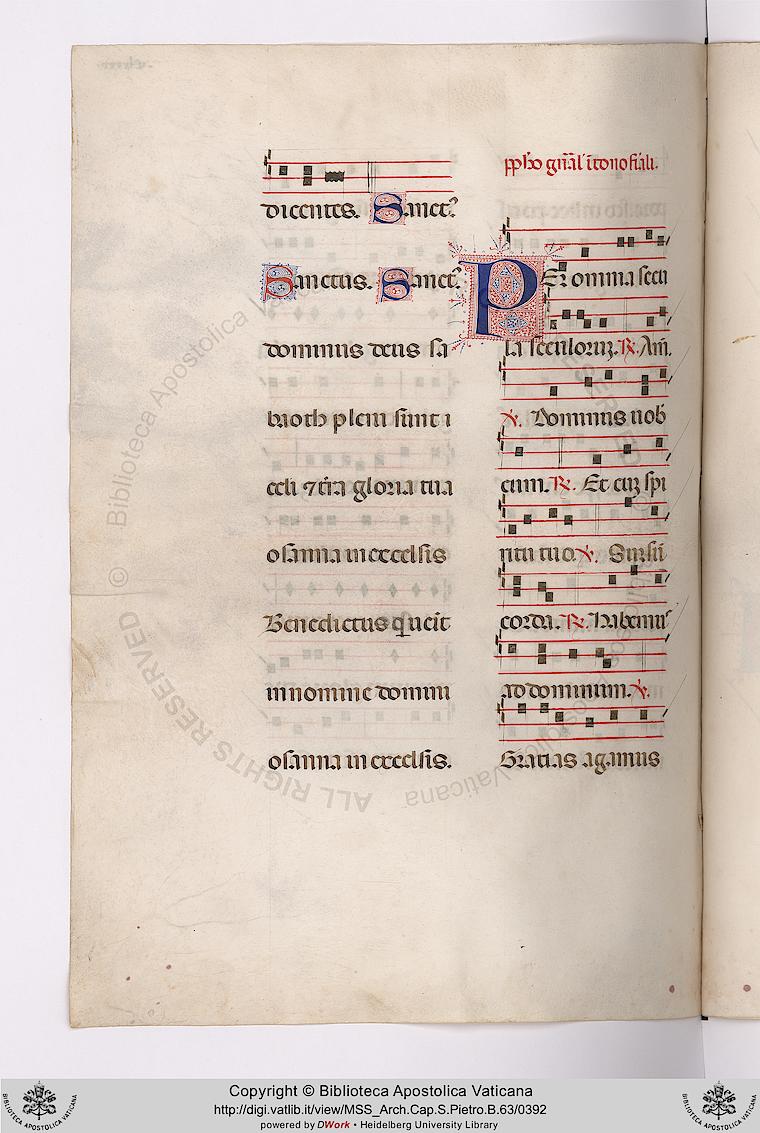 dicentes. Sanct⁹
Sanctus. Sanct⁹
dominus deus sa
baoth pleni sunt i
celi ⁊ tr̄a gloria tua
osanna in excelsis
Benedictus q̇ ueit
in nomine domini
osanna in excelsis.
in tono fiāli.
PEr omnia secu
la seculoruꝫ. ℟. Am̄.
℣. Dominus uob
cum. ℟. Et cuꝫ spi
ritu tuo. ℣. Sursū
corda. ℟. Habemus
ad dominum. ℣.
Gratias agamus
© Biblioteca Apostolica Vaticana
ALL RIGHTS RESERVED
Copyright © Biblioteca Apostolica Vaticana
http://digi.vatlib.it/view/MSS_Arch.Cap.S.Pietro.B.63/0392
powered by DWork • Heidelberg University Library
BIBLIOTECA APOSTOLICA VATICANA
BIBLIOTECA APOSTOLICA VATICANA